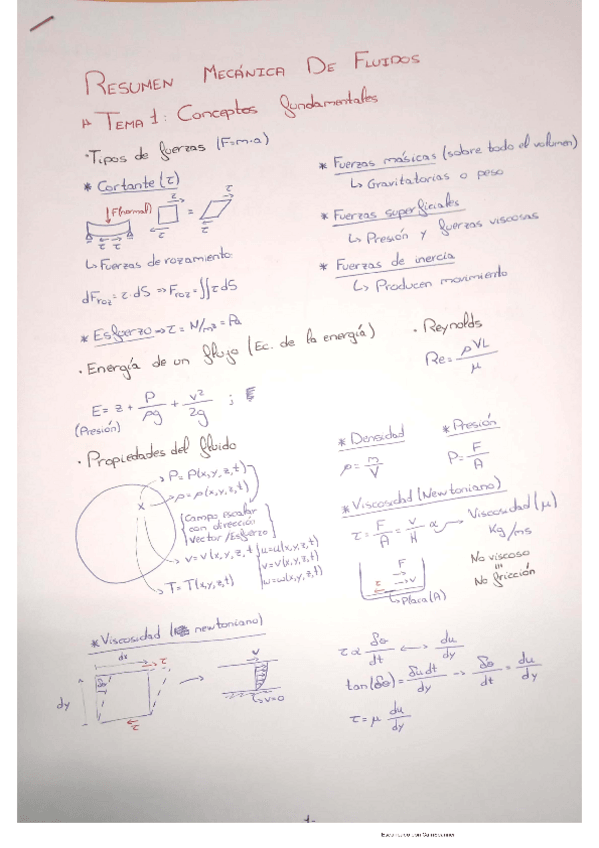 RESUMEN MECÁNICA DE FLUIDOS
TEMA 1: Conceptos fundamentales
· Tipos de fuerzas (F=m·a)
* Cortante (τ)
F(normal)
τ τ
τ
=
τ
τ
τ
↳ Fuerzas de rozamiento
dFroz = τ·dS ⇒ Froz = ∬τdS
* Esfuerzo ⇒ τ = N/m² = Pa
* Fuerzas másicas (sobre todo el volumen)
↳ Gravitatorias o peso
* Fuerzas superficiales
↳ Presión y fuerzas viscosas
* Fuerzas de inercia
↳ Producen movimiento
· Energía de un flujo (Ec. de la energía)
E = z + P/ρg + v²/2g ;
(Presión)
· Reynolds
Re = ρVL/μ
· Propiedades del fluido
x
P = P(x,y,z,t)
ρ = ρ(x,y,z,t)
Campo escalar
con dirección
Vector/Esfuerzo
v = v(x,y,z,t)
u = u(x,y,z,t)
v = v(x,y,z,t)
w = w(x,y,z,t)
T = T(x,y,z,t)
* Densidad
ρ = m/V
* Presión
P = F/A
* Viscosidad (Newtoniano)
τ = F/A = V/H α → Viscosidad (μ)
Kg/ms
F
τ → v
↳ Placa (A)
No viscoso
=
No fricción
* Viscosidad (newtoniano)
dx
τ
dy
δθ
τ
v
v=0
τ α δθ/dt ⟷ du/dy
tan(δθ) = δu dt/dy → δθ/dt = du/dy
τ = μ du/dy